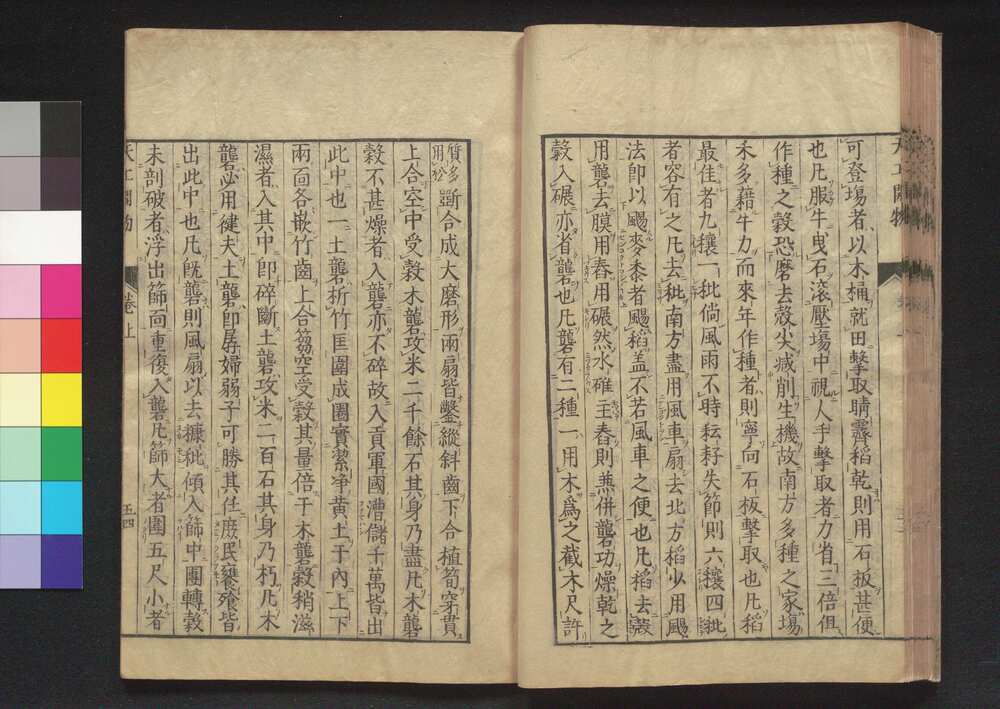 天工開物
可登場者以木桶就田擊取晴霽稻乾則用石板甚便
也凡服牛曳石滾壓場中視人手擊取者力省三倍俱
作種之穀恐磨去殼尖減削生機故南方多種之家場
禾多藉牛力而來年作種者則寧向石板擊取也凡稻
最佳者九穰一秕倘風雨不時耘耔失節則六穰四秕
者容有之凡去秕南方盡用風車扇去北方稻少用颺
法卽以颺麥黍者颺稻盖不若風車之便也凡稻去殼
用礱去膜用舂用碾然水碓主舂則兼併礱功燥乾之
穀入碾亦省礱也凡礱有二種一用木爲之截木尺許
質多
用松
斲合成大磨形兩扇皆鑿縱斜齒下合植筍穿貫
上合空中受穀木礱攻米二千餘石其身乃盡凡木礱
穀不甚燥者入礱亦不碎故入貢軍國漕儲千萬皆出
此中也一土礱析竹匡圍成圈實潔淨黄土于內上下
兩面各嵌竹齒上合篘空受穀其量倍于木礱穀稍滋
濕者入其中卽碎斷土礱攻米二百石其身乃朽凡木
礱必用健夫土礱卽孱婦弱子可勝其任庶民饔飱皆
出此中也凡旣礱則風扇以去糠秕傾入篩中團轉穀
未剖破者浮出篩面重復入礱凡篩大者圍五尺小者
天工開物
卷上
五四